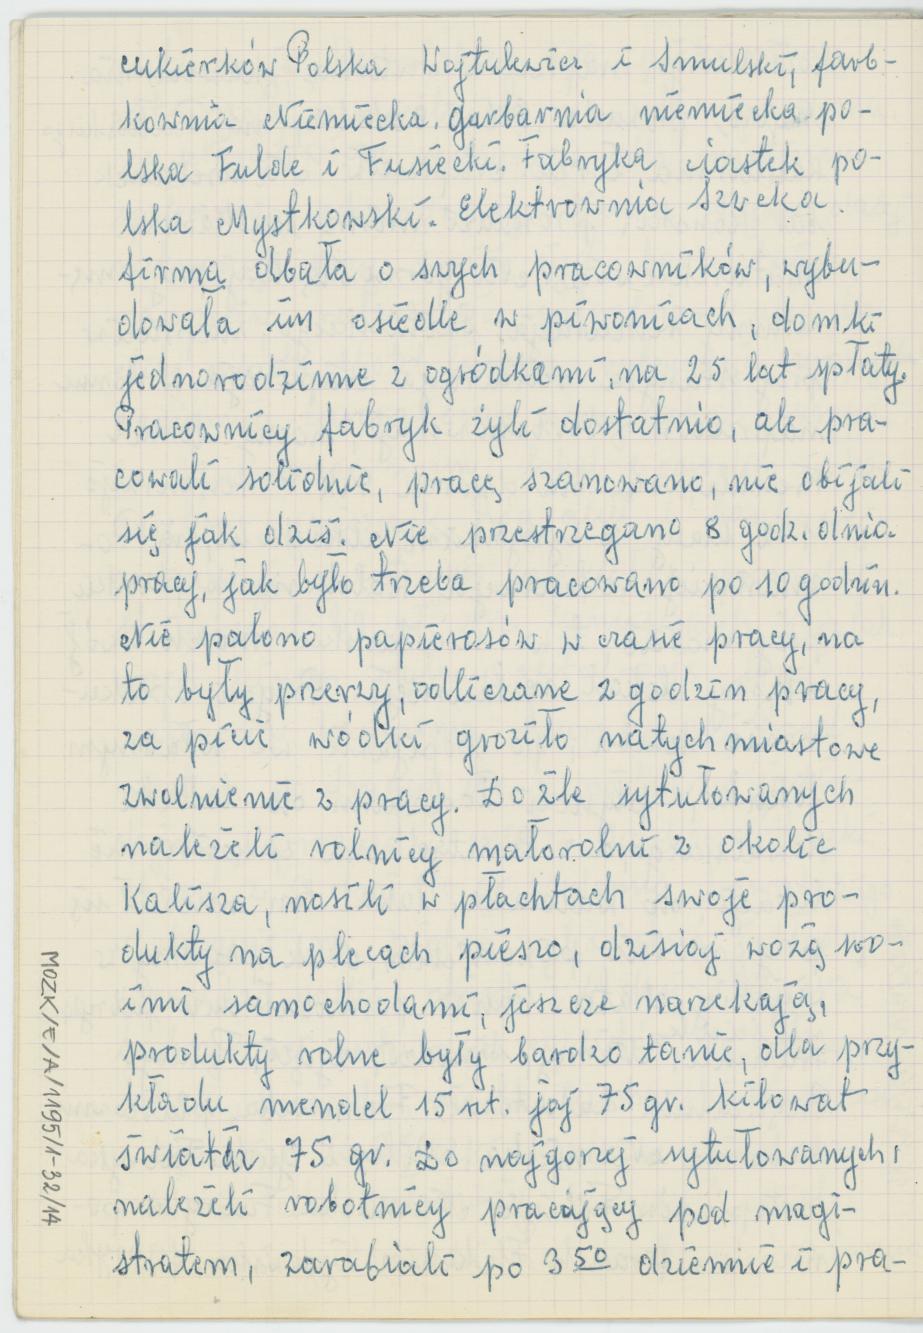 cukierków Polska Wojtulewicz i Smulski, farb-
kownia Niemiecka. garbarnia niemiecka po-
lska Fulde i Fusiecki. Fabryka ciastek po-
lska Mystkowski. Elektrownia Szwcka.
firma dbała o swych pracowników, wybu-
dowała im osiedle w piwonicach, domki
jednorodzinne z ogródkami, na 25 lat spłaty.
Pracownicy fabryk żyli dostatnio, ale pra-
cowali solidnie, pracę szanowano, nie obijali
się jak dziś. Nie przestrzegano 8 godz. dnia
pracy, jak było trzeba pracowano po 10 godzin.
Nie palono papierosów w czasie pracy, na
to były przerzy, odliczane z godzin pracy,
za picie wódki groziło natychmiastowe
zwolnienie z pracy. Do źle sytułowanych
należeli rolnicy małorolni z okolic
Kalisza, nosili w płachtach swoje pro-
dukty na plecach pieszo, dzisiaj wożą swo-
imi samochodami, jeszcze narzekają,
produkty rolne były bardzo tanie, dla przy-
kładu mendel 15 szt. jaj 75 gr. kilowat
światła 75 gr. Do najgorzej sytułowanych,
należeli robotnicy pracający pod magi-
stratem, zarabiali po 3 50 dziennie i pra-
MOZK/E/A/1195/1-32/14